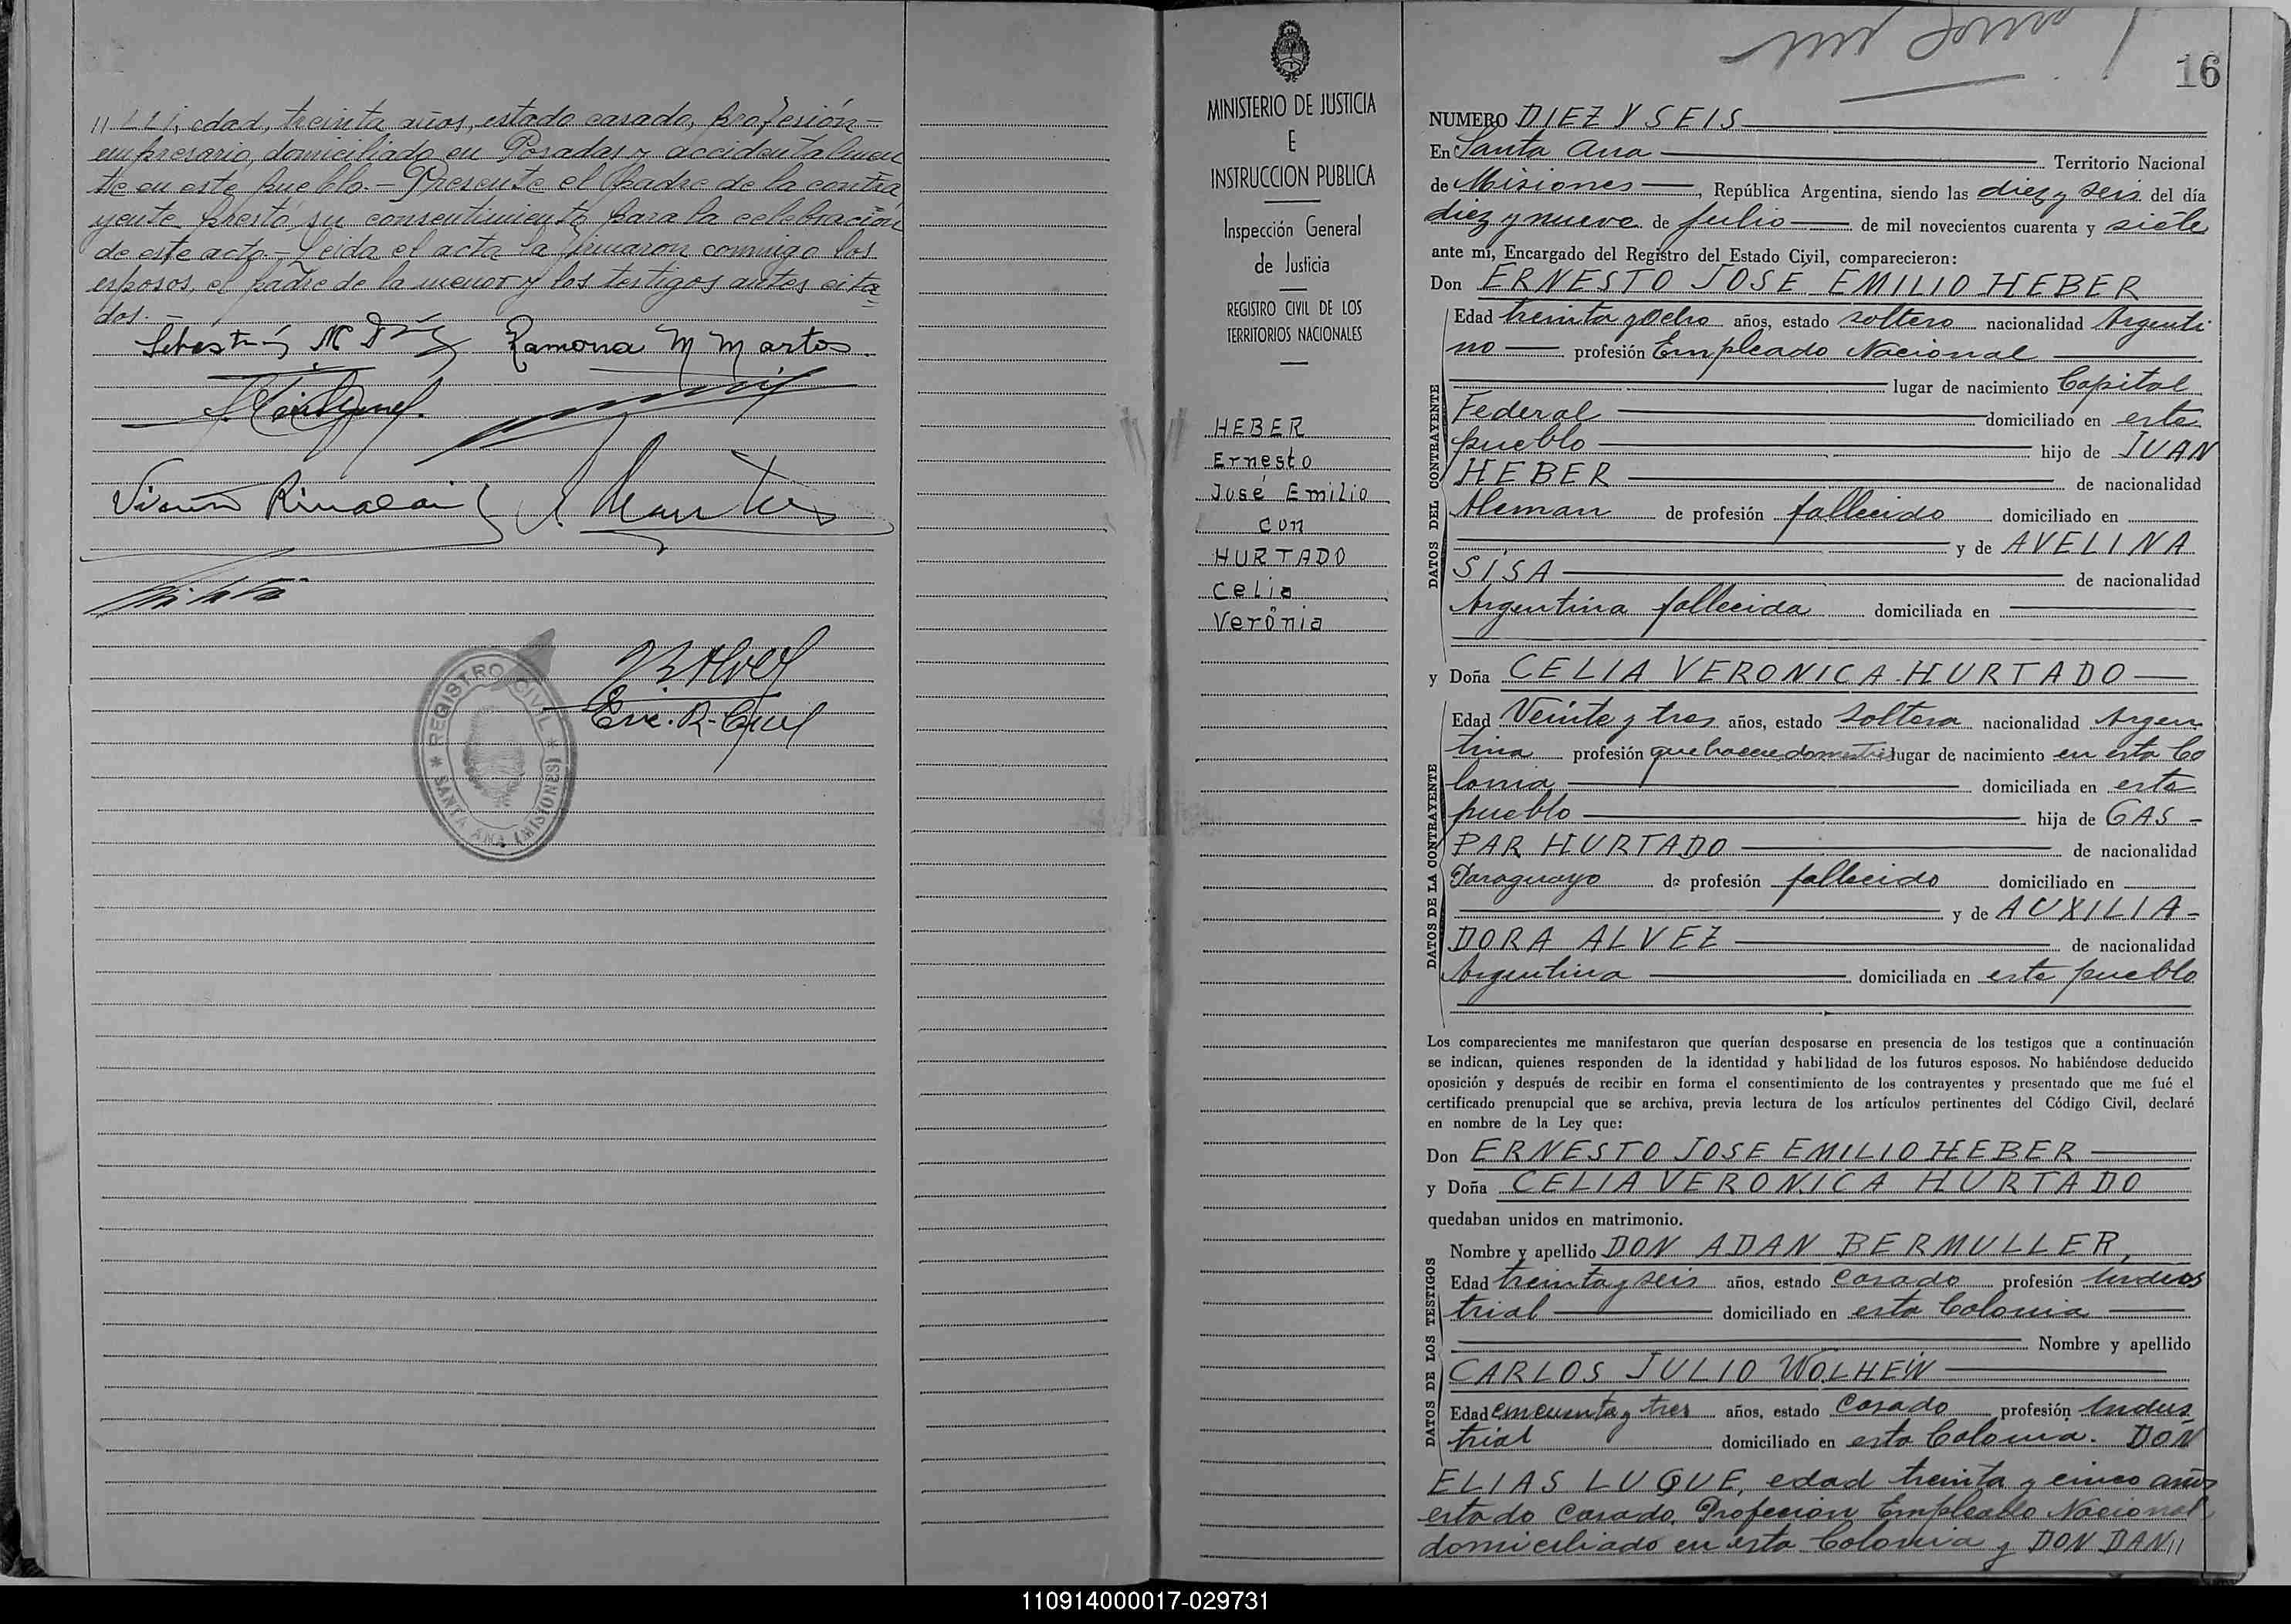 11 LLI, edad, treinta años, estado casado, profesión-
empresario, domiciliado en Posadas y accidentalmen
te en este pueblo.- Presente el padre de la contra
yente prestó su consentimiento para la celebración
de este acto.- Leida el acta la firmaron conmigo los
esposos, el padre de la menor y los testigos antes cita
dos.
Ramona M Martos
Enc. R. Civil
REGISTRO CIVIL
SANTA ANA (MISIONES)
MINISTERIO DE JUSTICIA
E
INSTRUCCION PUBLICA
Inspección General
de Justicia
REGISTRO CIVIL DE LOS
TERRITORIOS NACIONALES
HEBER
Ernesto
José Emilio
con
HURTADO
Celia
Verónia
16
NUMERO DIEZ Y SEIS
En Santa Ana Territorio Nacional
de Misiones, República Argentina, siendo las diez y seis del día
diez y nueve de julio de mil novecientos cuarenta y siete
ante mí, Encargado del Registro del Estado Civil, comparecieron:
Don ERNESTO JOSÉ EMILIO HEBER
DATOS DEL CONTRAYENTE
Edad treinta y ocho años, estado soltero nacionalidad Argenti
no profesión Empleado Nacional
lugar de nacimiento Capital
Federal domiciliado en este
pueblo hijo de JUAN
HEBER de nacionalidad
Aleman de profesión fallecido domiciliado en
y de AVELINA
SISA de nacionalidad
Argentina fallecida domiciliada en
y Doña CELIA VERONICA HURTADO
DATOS DE LA CONTRAYENTE
Edad Veinte y tres años, estado soltera nacionalidad Argen
tina profesión lugar de nacimiento en esta Co
lonia domiciliada en este
pueblo hija de GAS-
PAR HURTADO de nacionalidad
Paraguayo de profesión fallecido domiciliado en
y de AUXILIA-
DORA ALVEZ de nacionalidad
Argentina domiciliada en este pueblo
Los comparecientes me manifestaron que querían desposarse en presencia de los testigos que a continuación
se indican, quienes responden de la identidad y habilidad de los futuros esposos. No habiéndose deducido
oposición y después de recibir en forma el consentimiento de los contrayentes y presentado que me fué el
certificado prenupcial que se archiva, previa lectura de los artículos pertinentes del Código Civil, declaré
en nombre de la Ley que:
Don ERNESTO JOSE EMILIO HEBER
y Doña CELIA VERONICA HURTADO
quedaban unidos en matrimonio.
DATOS DE LOS TESTIGOS
Nombre y apellido DON ADAN BERMULLER,
Edad treinta y seis años, estado Casado profesión Indus
trial domiciliado en esta Colonia
Nombre y apellido
CARLOS JULIO WOLHEIN
Edad cincuenta y tres años, estado Casado profesión Indus
trial domiciliado en esta Colonia. DON
ELIAS LUQUE, edad treinta y cinco años
estado Casado, Profecion Empleado Nacional,
domiciliado en esta Colonia y DON DAN11
110914000017-029731